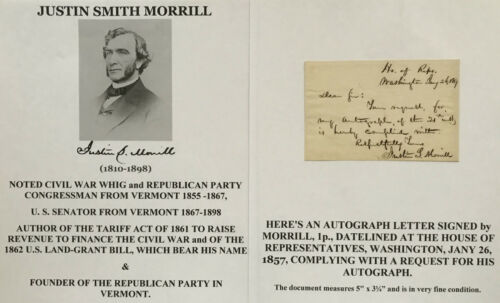 JUSTIN SMITH MORRILL
Justin S. Morrill
(1810-1898)
NOTED CIVIL WAR WHIG and REPUBLICAN PARTY
CONGRESSMAN FROM VERMONT 1855 -1867,
U. S. SENATOR FROM VERMONT 1867-1898
AUTHOR OF THE TARIFF ACT OF 1861 TO RAISE
REVENUE TO FINANCE THE CIVIL WAR and OF THE
1862 U.S. LAND-GRANT BILL, WHICH BEAR HIS NAME
&
FOUNDER OF THE REPUBLICAN PARTY IN
VERMONT.
Ho. of Reps.
Washington
Dear Sir:
Your request, for
my Autograph, of the 21st
is hereby complied with
Respectfully Yours
Justin S. Morrill
HERE'S AN AUTOGRAPH LETTER SIGNED by
MORRILL, 1p., DATELINED AT THE HOUSE OF
REPRESENTATIVES, WASHINGTON, JANY 26,
1857, COMPLYING WITH A REQUEST FOR HIS
AUTOGRAPH.
The document measures 5" x 3¼" and is in very fine condition.